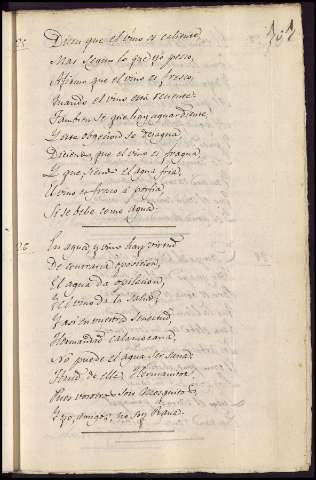 Dicen que el vino es caliente,
Mas segun lo que yo pesco,
Afirmo que el vino es fresco,
Quando el vino está reciente.
Tambien se que hay aguardiente
Y esta obgecion se desagua
Diciendo, que el vino es fragua,
Y que, siendo el agua fria,
El vino es fresco á porfia,
Si se bebe como agua.
En agua, y vino hay virtud
De contraria oposicion,
El agua da opilacion,
Y el vino da la salud;
Y asi en vuestra senectud,
Hermandad calamocana,
No puede el agua ser sana:
de ella Hermanitos,
Pues vosotros sois Mosquitos,
Y yo, amigos, no soy Rana.